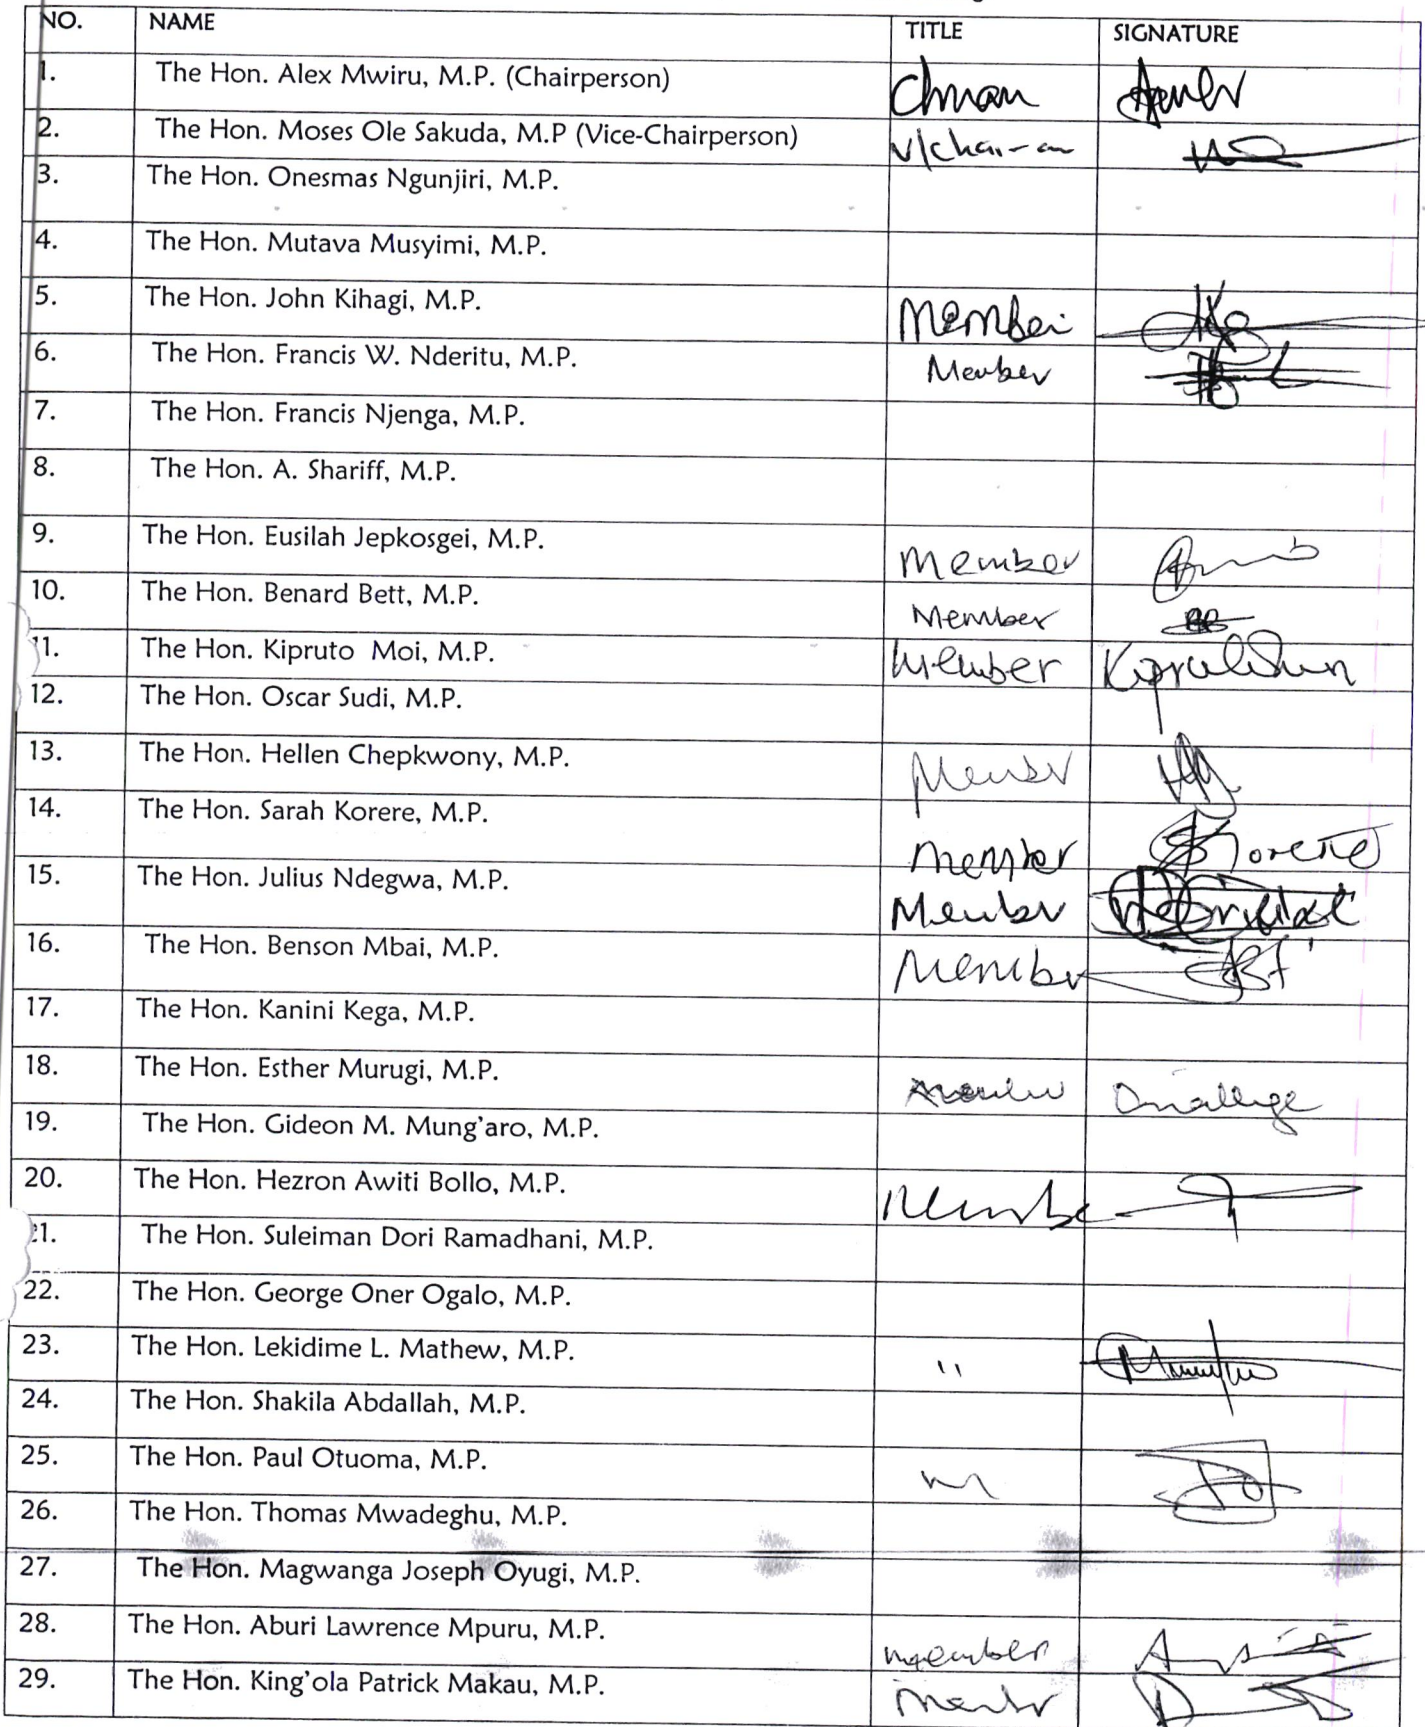 NO. NAME TITLE SIGNATURE
1. The Hon. Alex Mwiru, M.P. (Chairperson) Chman
2. The Hon. Moses Ole Sakuda, M.P (Vice-Chairperson) V/chairman
3. The Hon. Onesmas Ngunjiri, M.P.
4. The Hon. Mutava Musyimi, M.P.
5. The Hon. John Kihagi, M.P. Member
6. The Hon. Francis W. Nderitu, M.P. Member
7. The Hon. Francis Njenga, M.P.
8. The Hon. A. Shariff, M.P.
9. The Hon. Eusilah Jepkosgei, M.P. Member
10. The Hon. Benard Bett, M.P. Member
11. The Hon. Kipruto Moi, M.P. Member
12. The Hon. Oscar Sudi, M.P.
13. The Hon. Hellen Chepkwony, M.P. Member
14. The Hon. Sarah Korere, M.P. Member Korere
15. The Hon. Julius Ndegwa, M.P. Member
16. The Hon. Benson Mbai, M.P. Member
17. The Hon. Kanini Kega, M.P.
18. The Hon. Esther Murugi, M.P. Member
19. The Hon. Gideon M. Mung'aro, M.P.
20. The Hon. Hezron Awiti Bollo, M.P. Member
21. The Hon. Suleiman Dori Ramadhani, M.P.
22. The Hon. George Oner Ogalo, M.P.
23. The Hon. Lekidime L. Mathew, M.P. "
24. The Hon. Shakila Abdallah, M.P.
25. The Hon. Paul Otuoma, M.P. M
26. The Hon. Thomas Mwadeghu, M.P.
27. The Hon. Magwanga Joseph Oyugi, M.P.
28. The Hon. Aburi Lawrence Mpuru, M.P. member
29. The Hon. King'ola Patrick Makau, M.P. Member